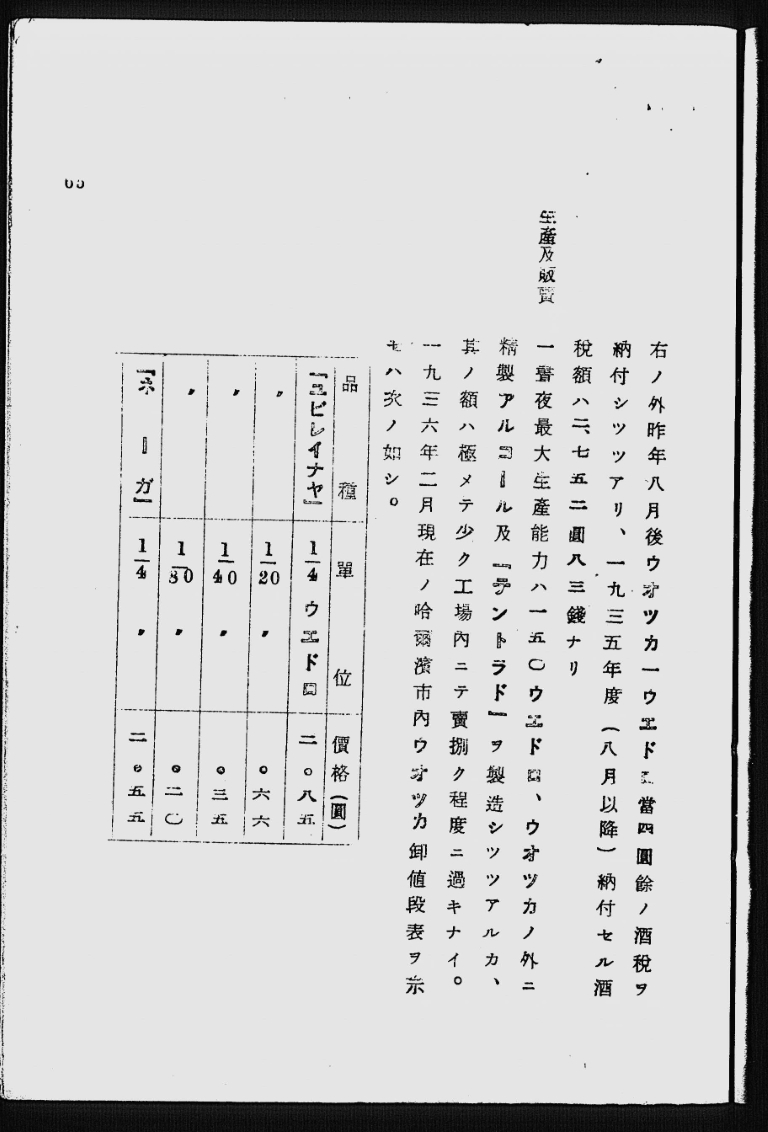 右ノ外昨年八月後ウオツカ一ウエドロ當四圓餘ノ酒税ヲ
納付シツツアリ、一九三五年度（八月以降）納付セル酒
税額ハ二、七五二圓八三錢ナリ
生產及販賣
一晝夜最大生產能力ハ一五〇ウエドロ、ウオツカノ外ニ
精製アルコール及『テントラド』ヲ製造シツツアルカ、
其ノ額ハ極メテ少ク工場內ニテ賣捌ク程度ニ過キナイ。
一九三六年二月現在ノ哈爾濱市內ウオツカ卸値段表ヲ示
セハ次ノ如シ。
品種 單位 價格（圓）
『ユビレイナヤ』 1/4 ウエドロ 二。八五
〃 1/20 〃 。六六
〃 1/40 〃 。三五
〃 1/80 〃 。二〇
『ネーガ』 1/4 〃 二。五五